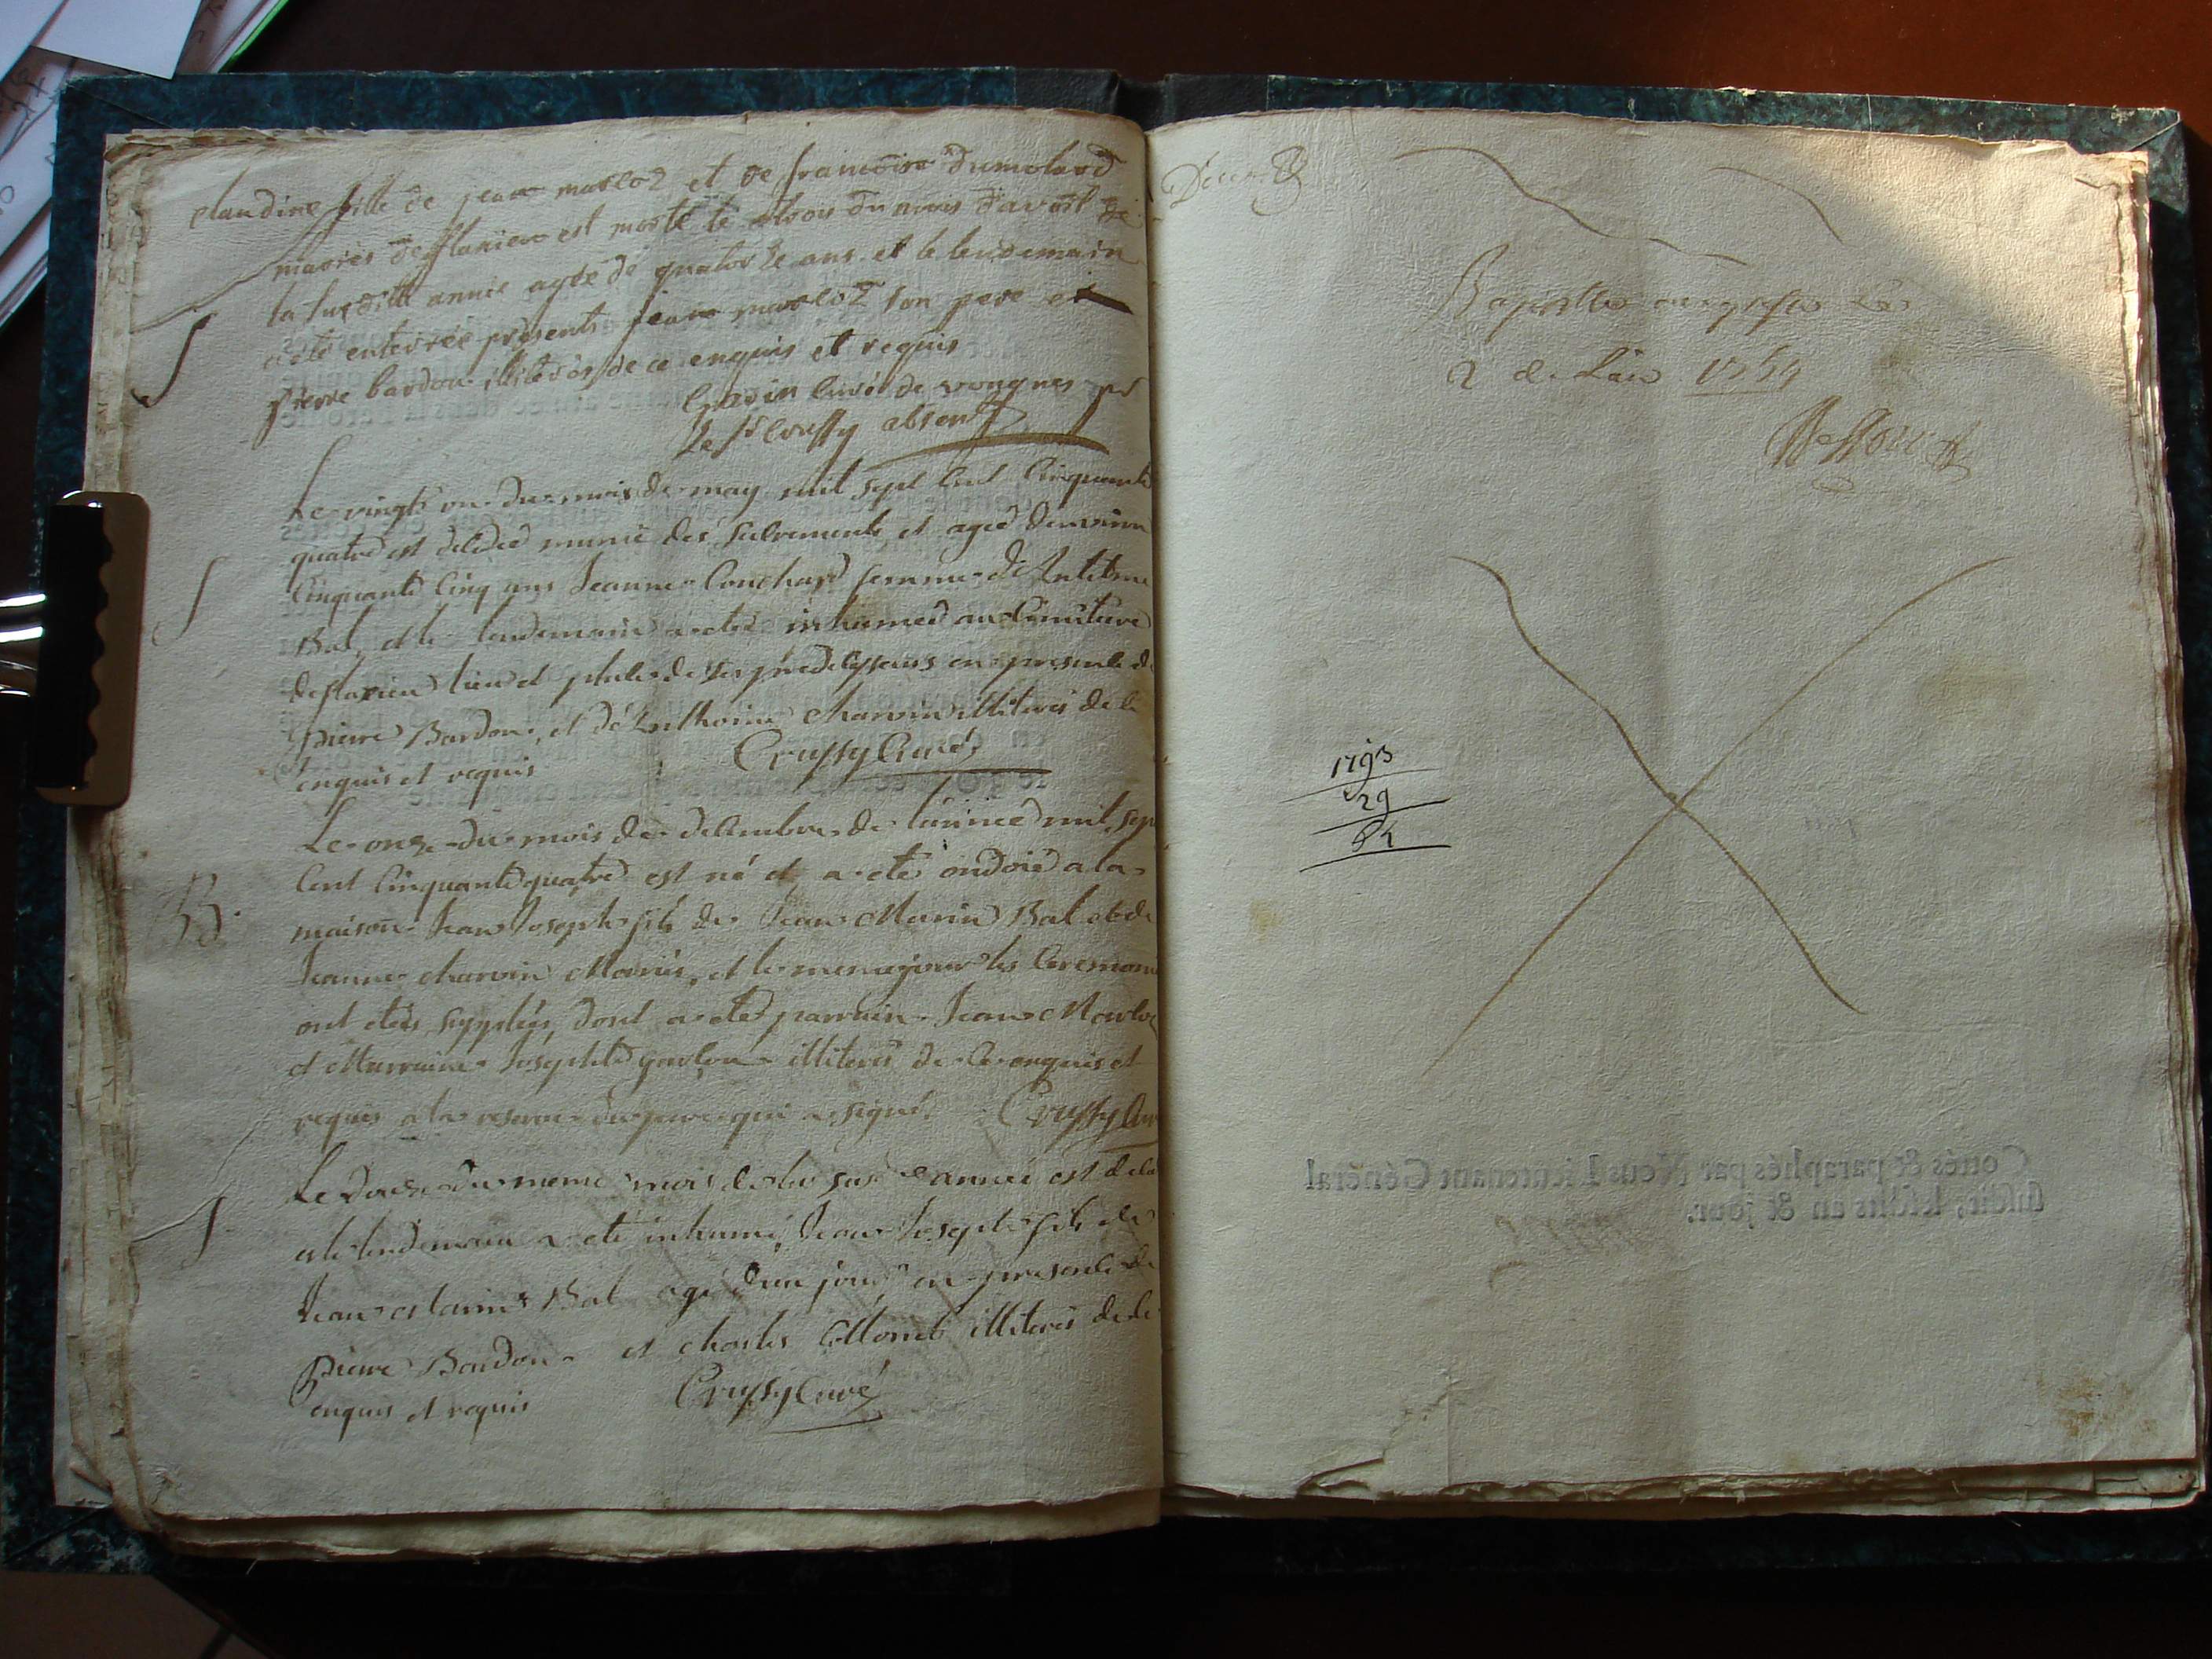 claudine fille de jean marloz et de francoise dumolard
mariés de flaxieu est morte le trois du mois d'avril de
la susditte année agée de quatorze ans et le lendemain
a eté enterrée présents jean marloz son pere et
pierre bardon illiterés de ce enquis et requis
curé de vongnes pr
le sr crussy absent
S
Le vingt un du mois de may mil sept cent cinquante
quatre est decedée munie des sacrements, et agée denviron
cinquante cinq ans Jeanne Couchard femme de Antelme
Bal, et le lendemain a eté inhumée au cimitiere
de flaxieu lieu et place de ses predecesseurs en presence de
pierre Bardon, et de Anthoine charvin illiterés de ce
enquis et requis Crussy Curé
S
Le onze du mois de decembre de l'année mil sep
cent cinquante quatre est né et a eté ondoié a la
maison Jean Joseph fils de Jean Marin Bal et de
Jeanne charvin Mariés, et le meme jour les ceremon
ont etés supplées, dont a eté parrain Jean Marloz
et Marraine Josephte illiterés de ce enquis et
requis a la reserve du pere qui a signé. Crussy Cur
B.
Le douze du meme mois de la susde année est dece
et le lendemain a eté inhumé Jean Joseph fils de
Jean Marin Bal agé d'un jour, en presence de
pierre Bardon et charles illiterés de ce
enquis et requis Crussy Curé
S
au greffe le
2 1754
1793
29
64
Cottés & paraphés par Nous Lieutenant Général
susdit, lesdits an & jour.